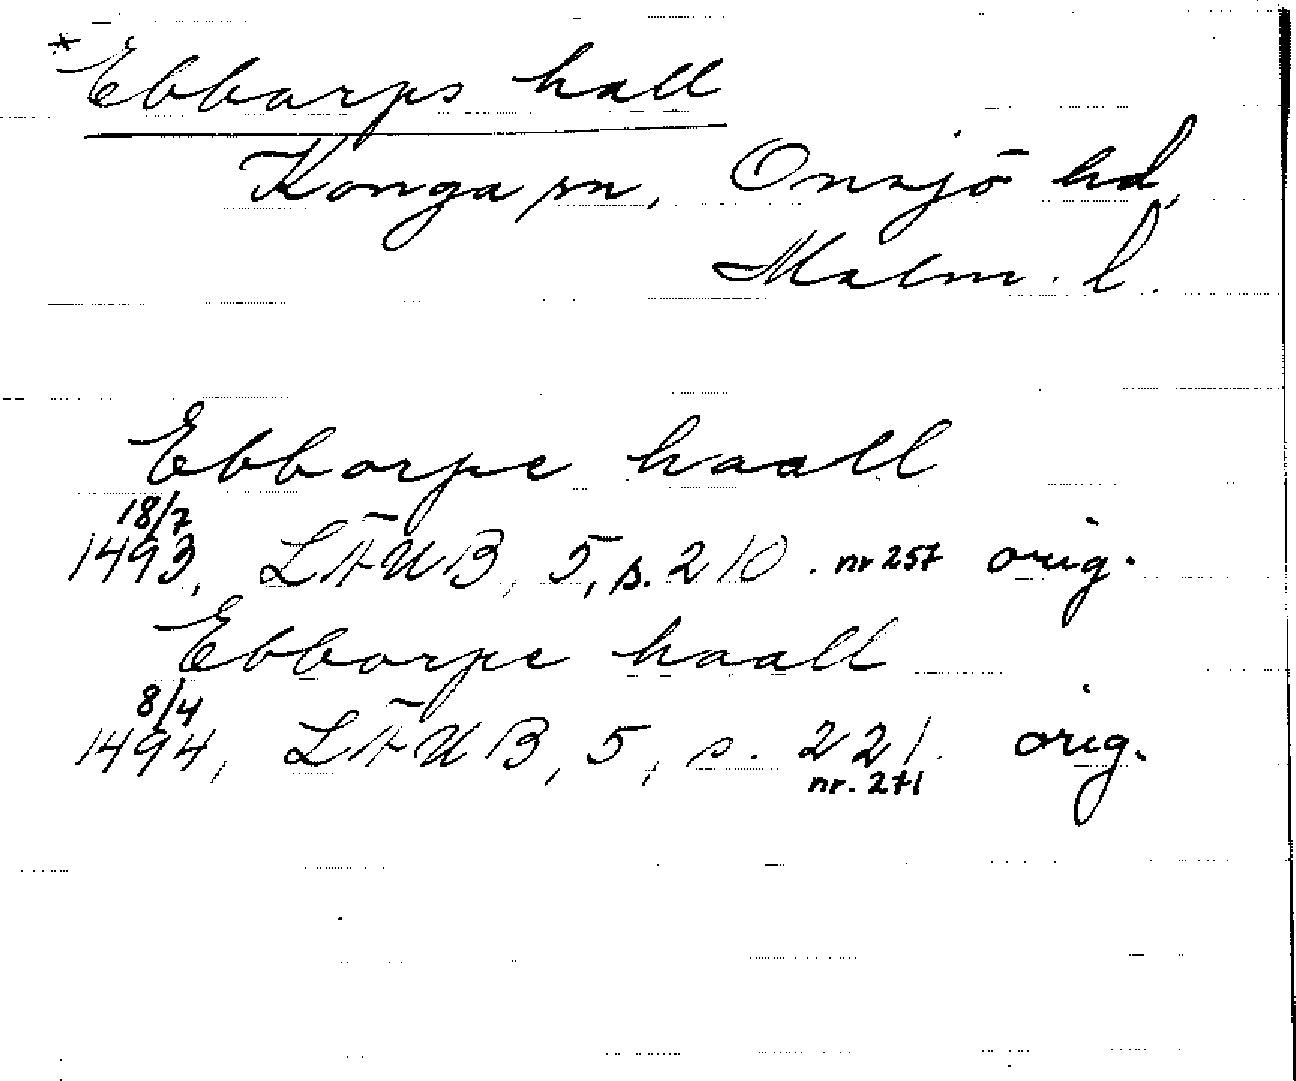 *Ebbarps hall
Konga sn, Onsjö hd,
Malm. l.
Ebborpe haall
18/7
1493, LÄUB, 5, s. 210. nr 257 orig.
Ebborpe haall
8/4
1494, LÄUB, 5, s. 221. orig.
nr. 271